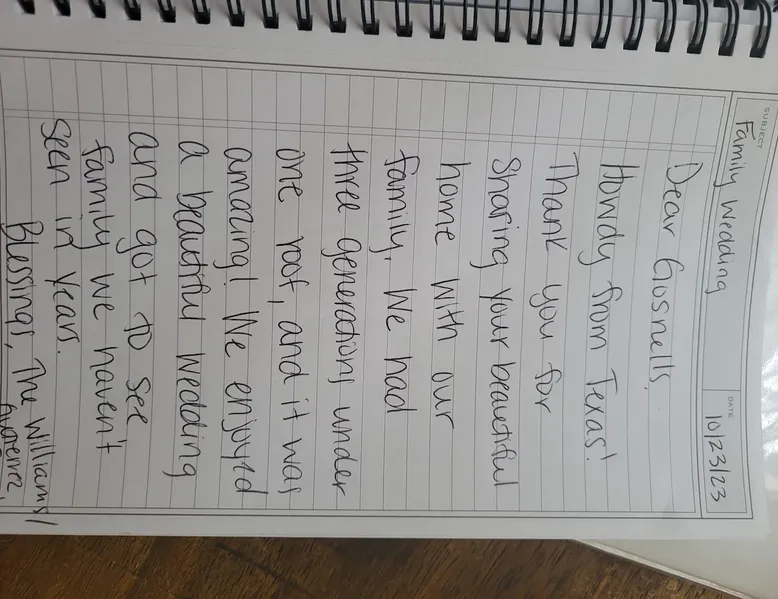 SUBJECT
Family Wedding
DATE
10/23/23
Dear Gosnells,
Howdy from Texas!
Thank you for
Sharing your beautiful
home with our
family. We had
three generations under
one roof, and it was
amazing! We enjoyed
a beautiful wedding
and got to see
family we haven't
seen in years.
Blessings, The Williams/